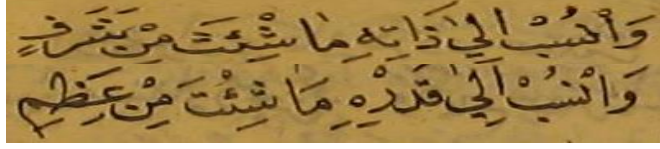 وَانْسُبْ اِليٰ ذَاتِهِ مَا شِئْتَ مِنْ شَرَفٍ
وَانْسُبْ اِليٰ قَدْرِهِ مَا شِئْتَ مِنْ عِظَمِ